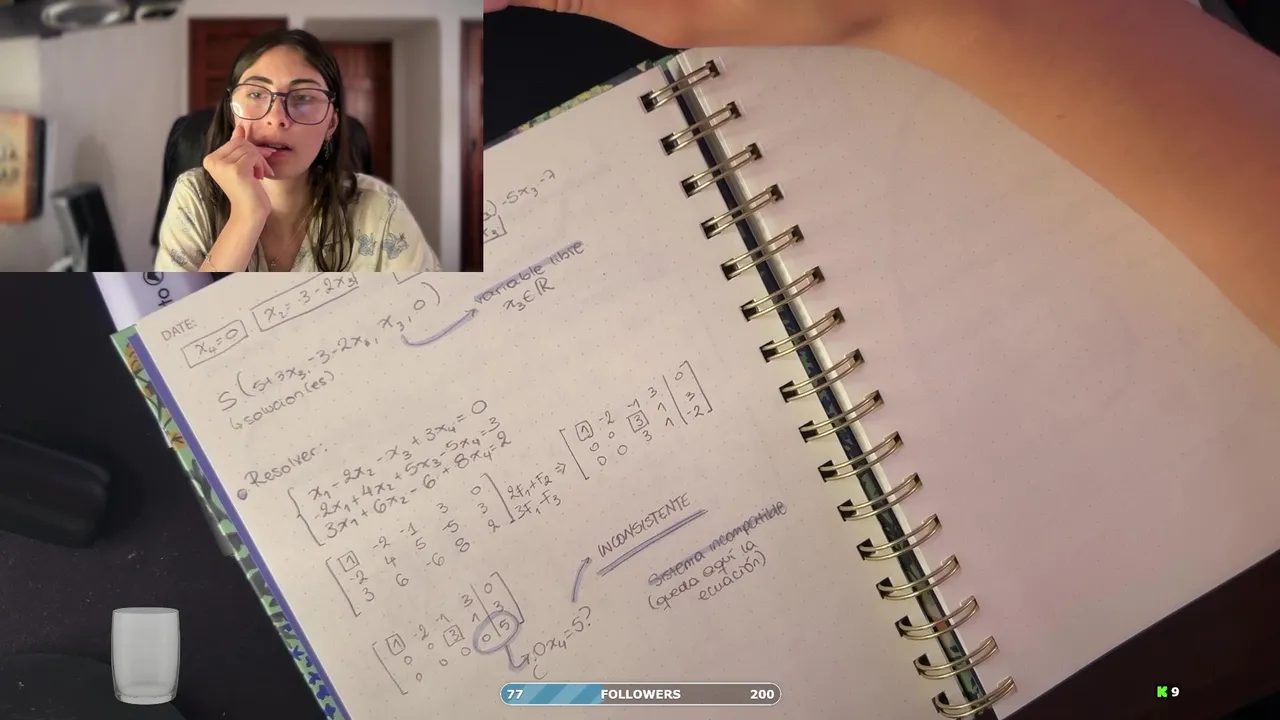 ) -5x₃ -7
DATE:
x₄ = 0
x₂ = -3 - 2x₃
S (5+3x₃, -3-2x₃, x₃, 0)
↳ solución(es)
variable libre
x₃ ∈ ℝ
Resolver:
x₁ - 2x₂ - x₃ + 3x₄ = 0
2x₁ + 4x₂ + 5x₃ - 5x₄ = 3
3x₁ + 6x₂ - 6 + 8x₄ = 2
1 -2 -1 3 0
-2 4 5 -5 3
3 6 -6 8 2
2F₁+F₂
3F₁-F₃
⇒
1 -2 -1 3 | 0
0 0 3 1 | 3
0 0 3 1 | -2
1 -2 -1 3 | 0
0 0 3 1 | 3
0 0 0 0 | 5
¿0x₄=5?
INCONSISTENTE
Sistema incompatible
(queda aquí la
ecuación)
77 FOLLOWERS 200
K 9